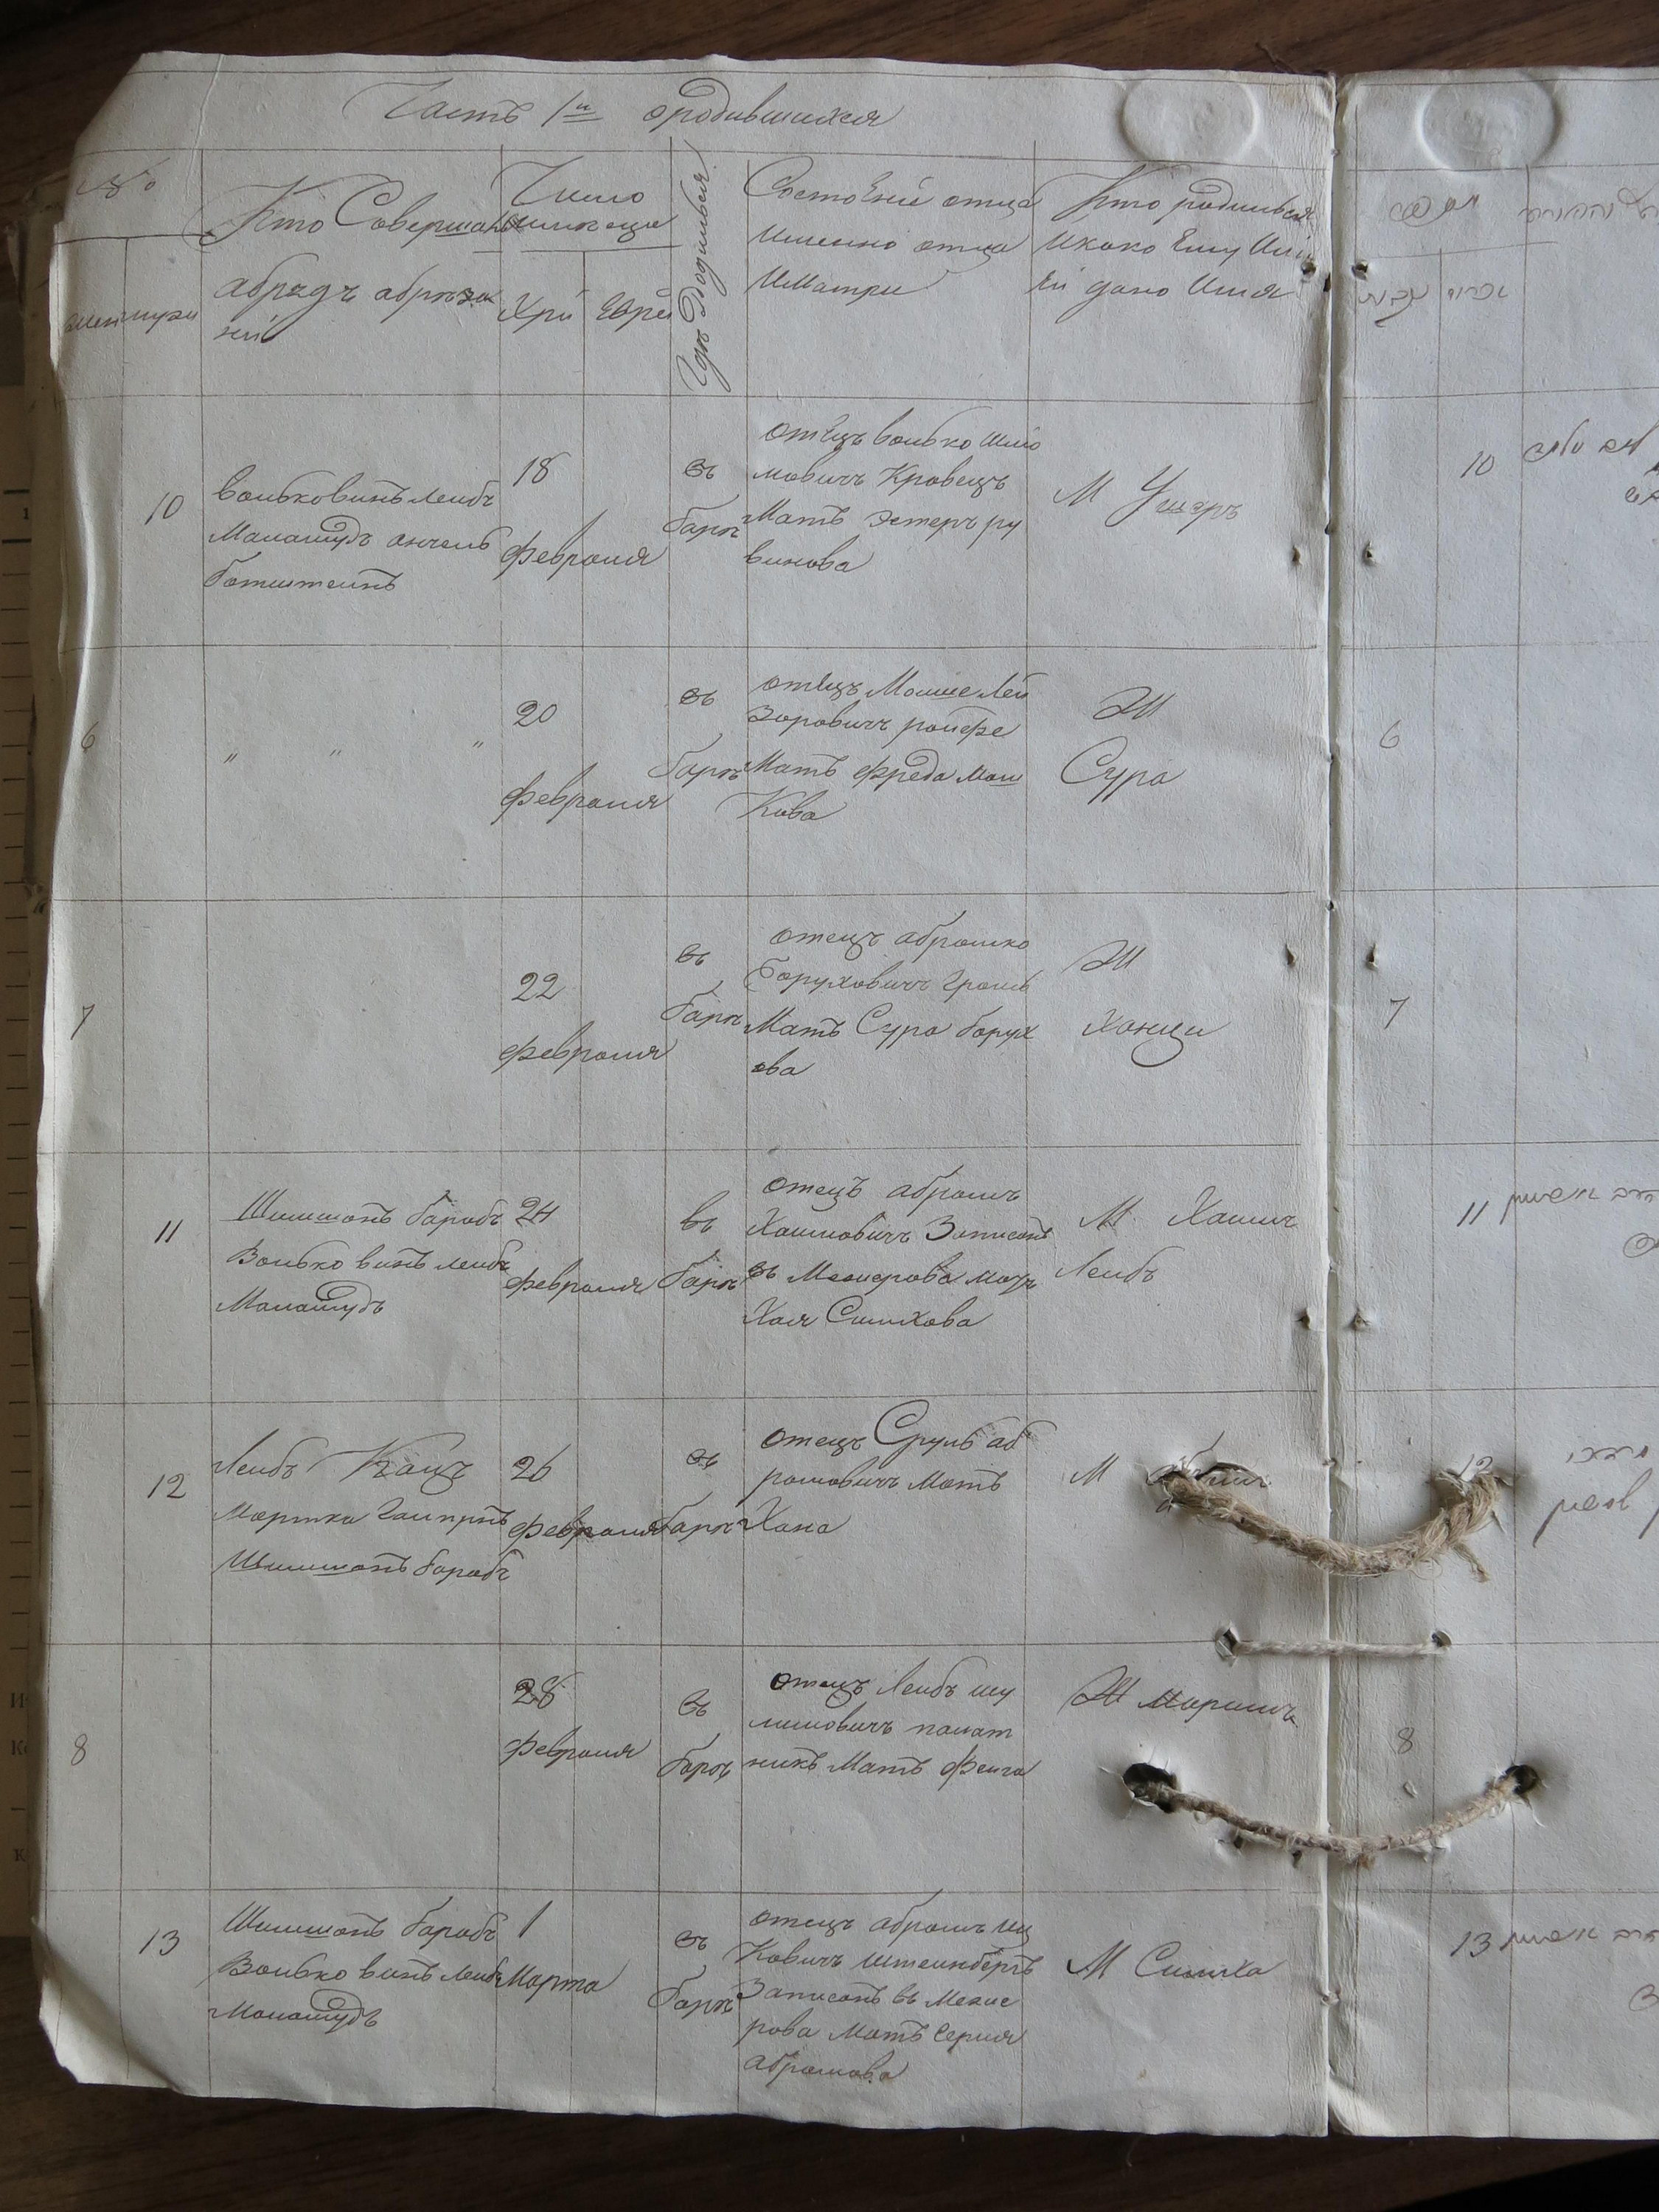 Часть 1я о родившихся
№
Кто Совершалъ
абрядъ абреза
ній
Число
имесеца
Хри Евре
Где Родилься
Состоѣніе отца
Имено отца
ИМатри
Кто родилься
Икако Ему Или
Ей дано Имя
10
волько винъ леибъ
Манашудъ анчель
ботштеинъ
18
февраля
въ
баръ
отецъ волько шмо
мовичъ Кравецъ
Мать эстеръ ру
винова
М Ушеръ
10
6
" " "
20
февраля
въ
баръ
отецъ Мошше Леи
зоровичъ роифе
Мать фреда мош
Кова
Ж
Сура
6
7
22
февраля
въ
баръ
отецъ абрашко
борухровичъ грань
Мать Сура борух
ова
Ж
Ханци
7
11
Шимшонъ барабъ
Волько винъ леибъ
Манашудъ
24
февраля
въ
баръ
отецъ абрамъ
Хаимовичъ Записанъ
въ Межерова мать
Хая Симхова
М Хаимъ
Леибъ
11
12
Леибъ Кацъ
Мортка Галпринъ
Шимшонъ барабъ
26
февраля
баръ
отецъ Сруль аб
рамовичъ мать
Хана
М
12
8
28
февраля
въ
баръ
отецъ Леибъ шу
лимовичъ палат
никъ Мать феига
Ж Маримъ
8
13
Шимшонъ барабъ
Волько винъ леибъ
Манашудъ
1
Марта
въ
баръ
отецъ абрамъ иц
Ковичъ штеинбергъ
Записанъ въ Межие
рова Мать Серля
абрамова
М Симха
13